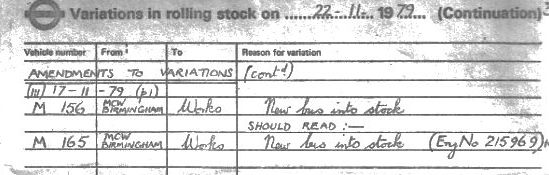 Variations in rolling stock on ......22-.11-.. 1979... (Continuation)
Vehicle number From To Reason for variation
AMENDMENTS TO VARIATIONS (contd)
(III) 17-11-79 (p1)
M 156 MCW BIRMINGHAM Works New bus into stock
SHOULD READ :—
M 165 MCW BIRMINGHAM Works New bus into stock (Eng No 215969)